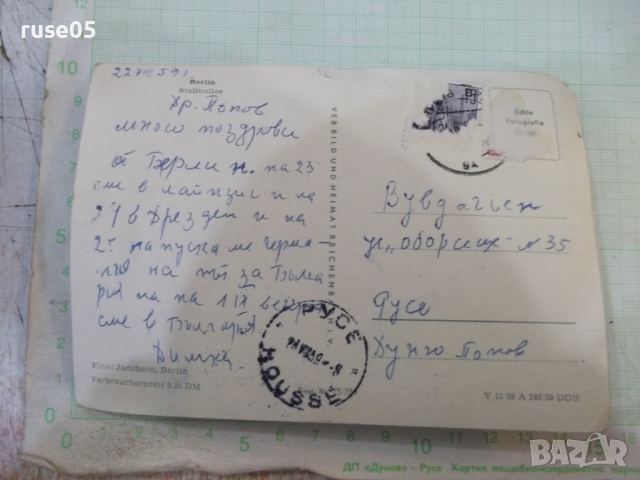 ruse05
22 VIII 59 г.
Berlin
Stalinallee
Др. Попов
много поздрави
от Берлин. на 23
сме в лайпциг и на
24 в Дрезден и на
25 напускаме герма-
ния на път за Бълга
рия на 1 IX вечер
сме в България
Димка
Foto: Jacobson, Berlin
Verbraucherpreis 0.25 DM
VER BILD UND HEIMAT REICHENBACH I. V.
Echte
Fotografie
България
ул. "оборище" N 35
Русе
Попов
РУСЕ
ROUSSE
V 11 28 A 246/59 DDR
ДП «Дунав» - Русе Хартия
BAZAR
bg